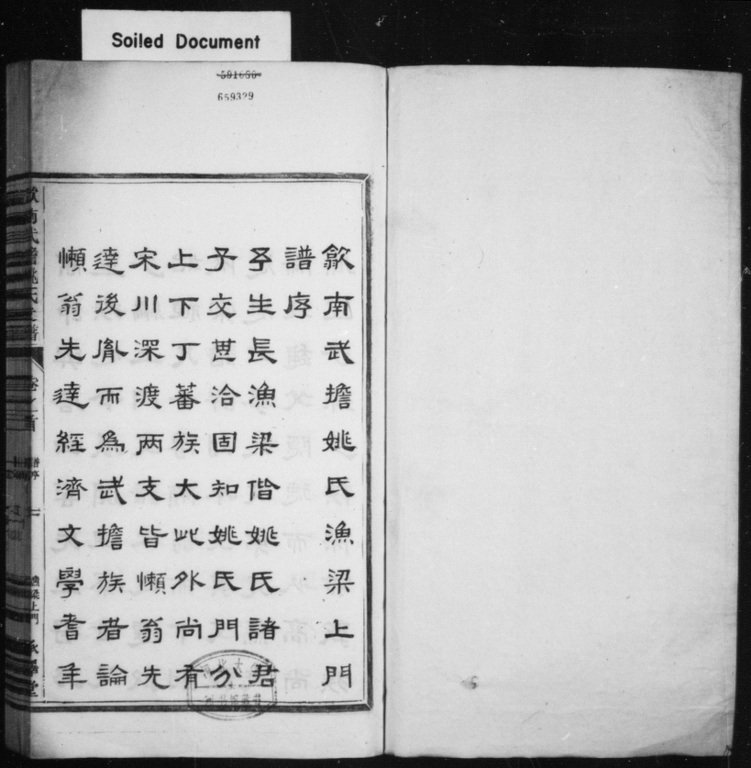 Soiled Document
591656
659329
歙南武擔姚氏漁梁上門
譜序
予生長漁梁偕姚氏諸君
子交甚洽固知姚氏門分
上下丁蕃族大此外尚有
宋川深渡兩支皆懶翁先
達後胤而為武擔族者論
懶翁先達經濟文學耆年
歙南武擔姚氏之譜
卷之首
譜序
漁梁上門